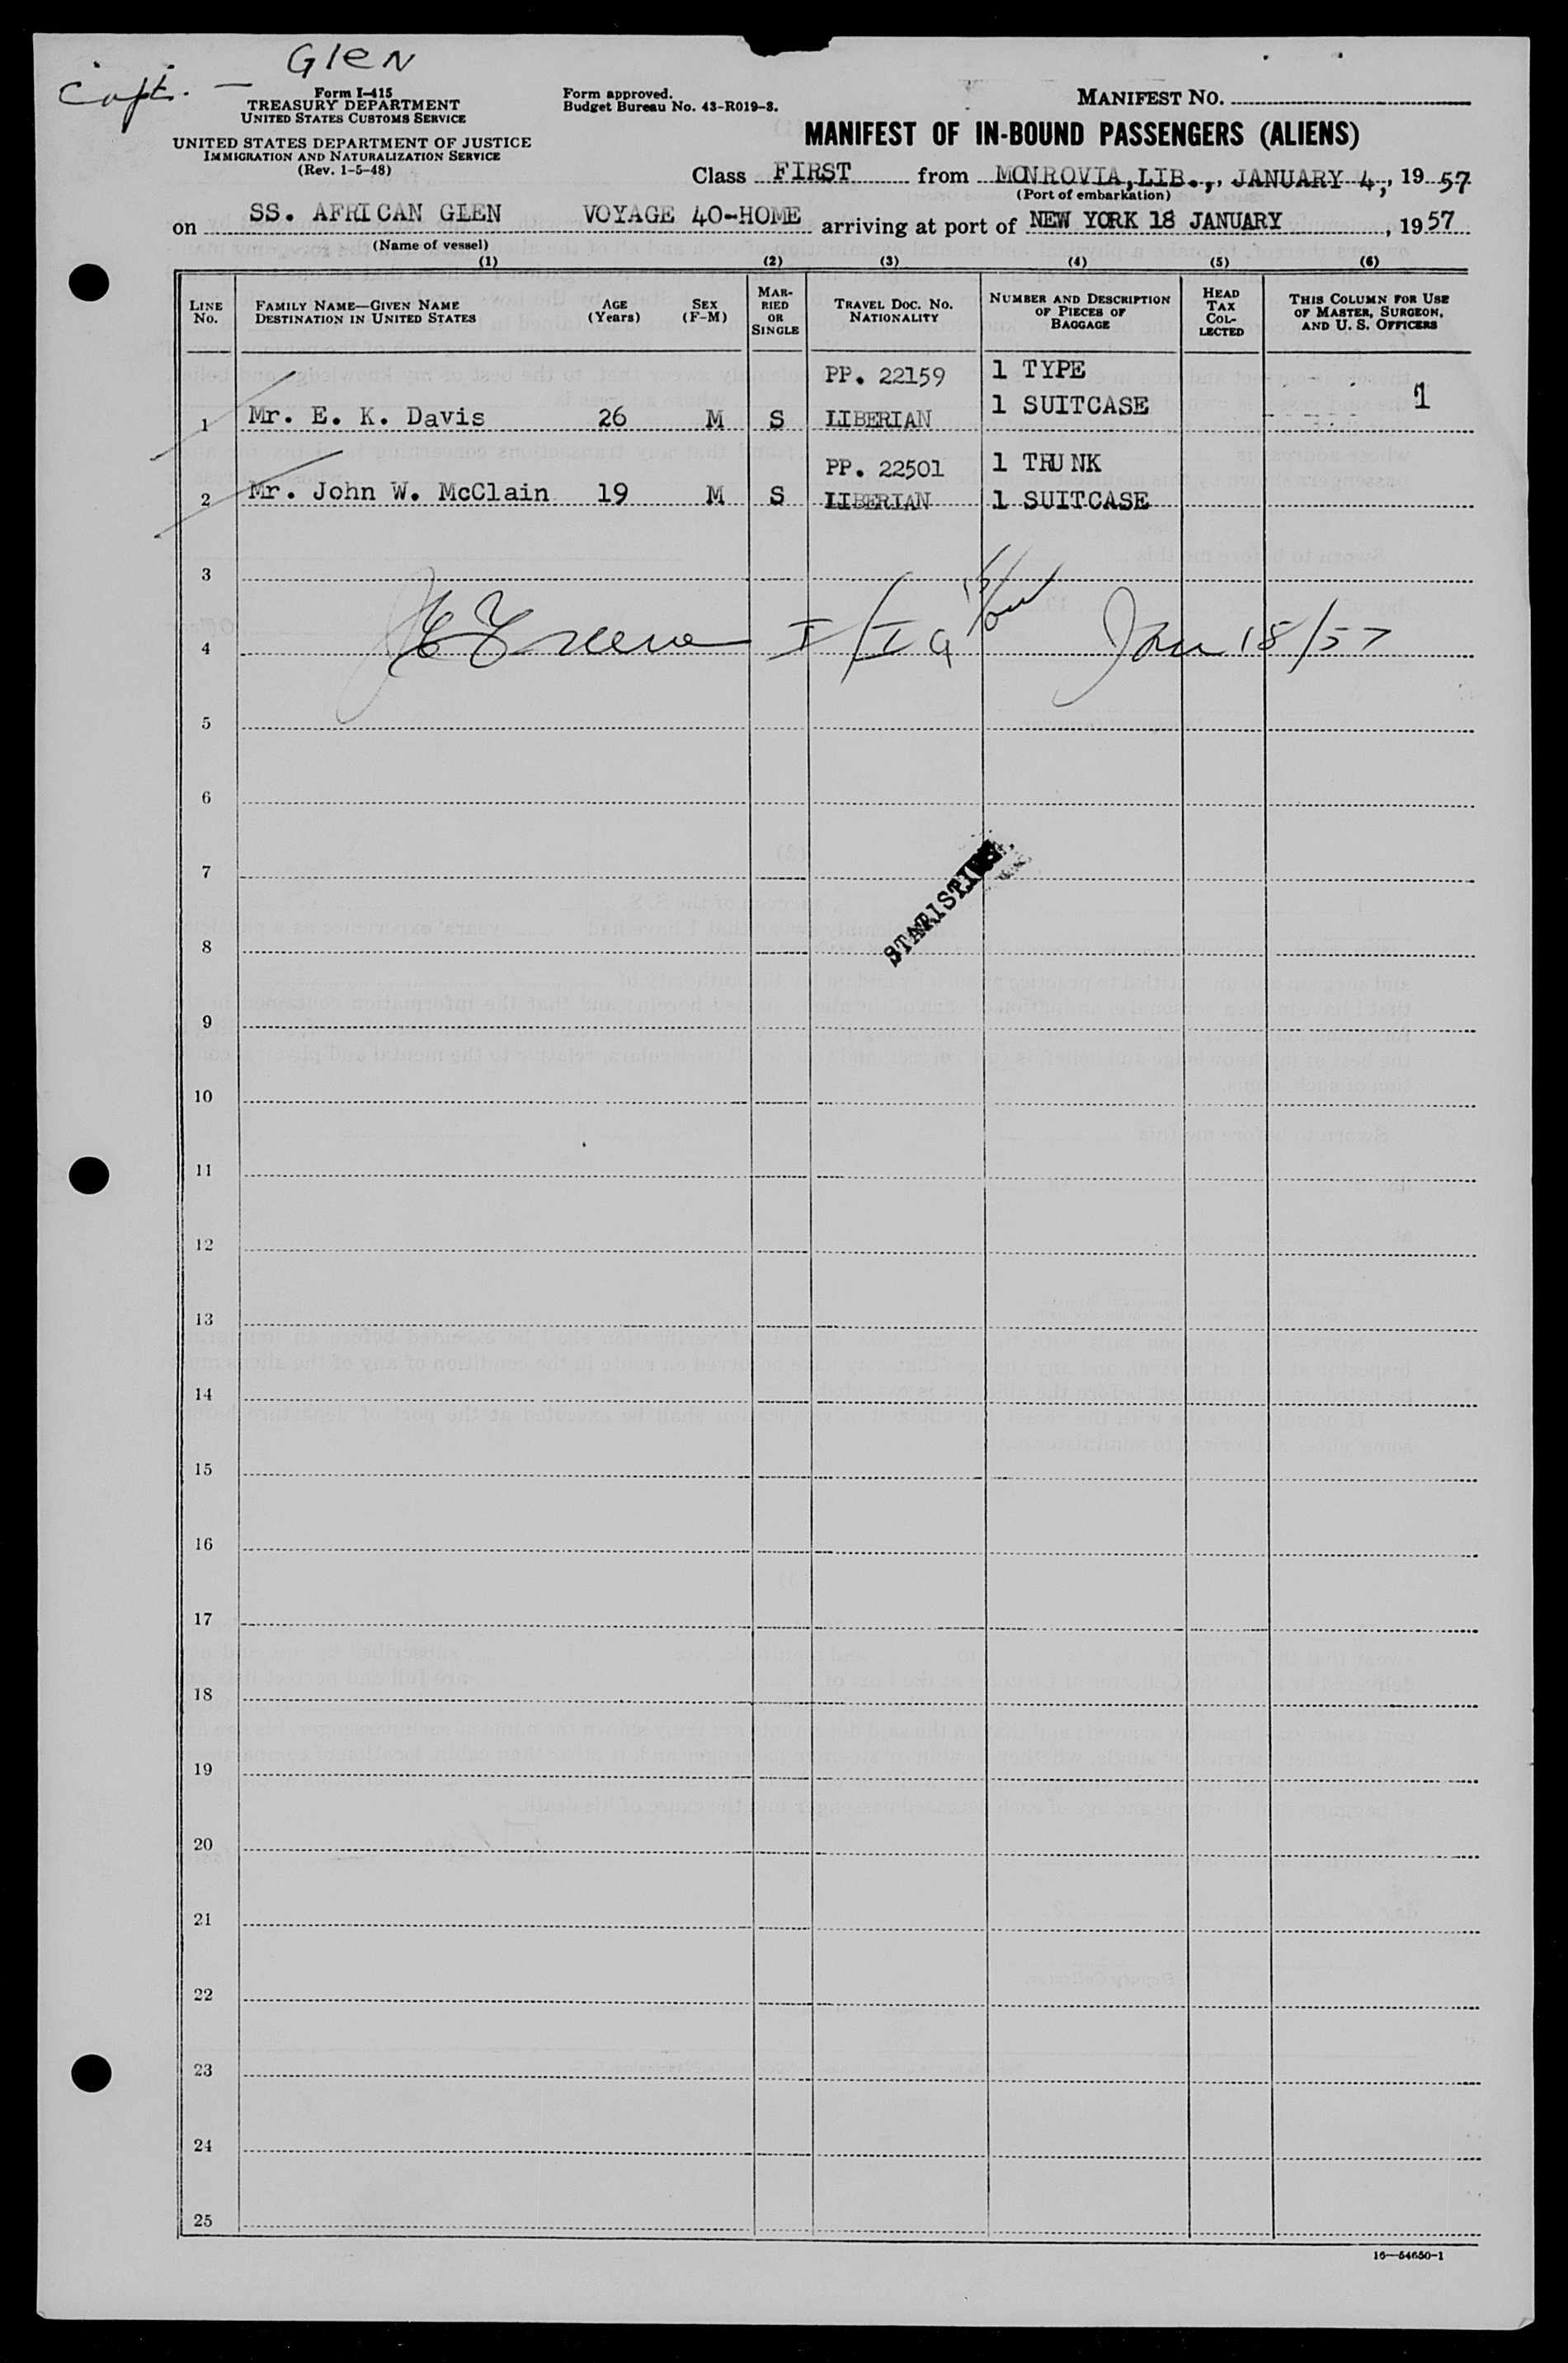 Glen
Capt. —
Form I-415
TREASURY DEPARTMENT
UNITED STATES CUSTOMS SERVICE
UNITED STATES DEPARTMENT OF JUSTICE
IMMIGRATION AND NATURALIZATION SERVICE
(Rev. 1-5-48)
Form approved.
Budget Bureau No. 43-R019-3.
MANIFEST NO.
MANIFEST OF IN-BOUND PASSENGERS (ALIENS)
Class FIRST from MONROVIA, LIB., JANUARY 4, 1957
(Port of embarkation)
on SS. AFRICAN GLEN VOYAGE 40-HOME arriving at port of NEW YORK 18 JANUARY, 1957
(Name of vessel)
(1) (2) (3) (4) (5) (6)
LINE No. FAMILY NAME—GIVEN NAME DESTINATION IN UNITED STATES AGE (Years) SEX (F-M) MARRIED OR SINGLE TRAVEL DOC. NO. NATIONALITY NUMBER AND DESCRIPTION OF PIECES OF BAGGAGE HEAD TAX COLLECTED THIS COLUMN FOR USE OF MASTER, SURGEON, AND U. S. OFFICERS
PP. 22159 1 TYPE
1 Mr. E. K. Davis 26 M S LIBERIAN 1 SUITCASE 1
PP. 22501 1 TRUNK
2 Mr. John W. McClain 19 M S LIBERIAN 1 SUITCASE
3
4 Greene Jan 18/57
5
6
7
STATISTICS
8
9
10
11
12
13
14
15
16
17
18
19
20
21
22
23
24
25
16—54650-1